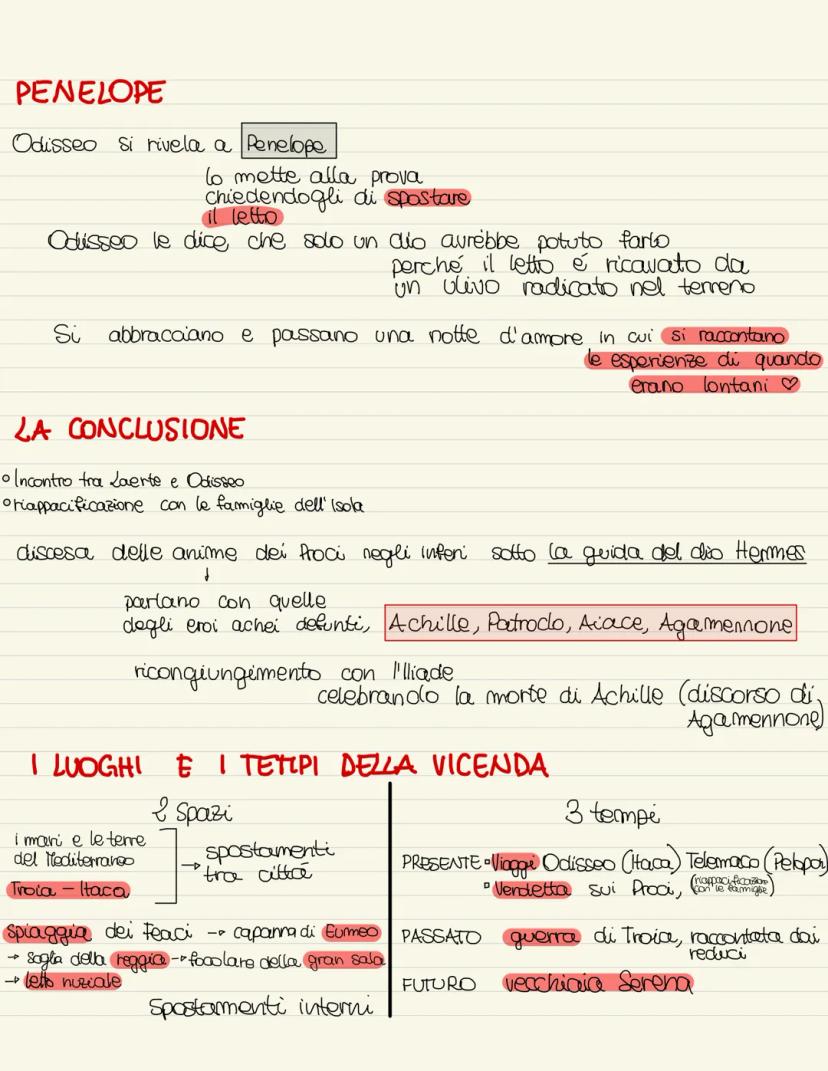 PENELOPE
Odisseo si rivela a Penelope
lo mette alla prova
chiedendogli di spostare
il letto
Odisseo le dice che solo un dio avrebbe potuto farlo
perché il letto é ricavato da
un ulivo radicato nel terreno
Si abbracciano e passano una notte d'amore in cui si raccontano
le esperienze di quando
erano lontani ♡
LA CONCLUSIONE
° Incontro tra Laerte e Odisseo
° riappacificazione con le famiglie dell'Isola
discesa delle anime dei Proci negli inferi sotto la guida del dio Hermes
↓
parlano con quelle
degli eroi achei defunti, Achille, Patroclo, Aiace, Agamennone
ricongiungimento con l'Iliade
celebrando la morte di Achille (discorso di
Agamennone)
I LUOGHI E I TEMPI DELLA VICENDA
2 Spazi
i mari e le terre
del Mediterraneo
Troia - Itaca
→ spostamenti
tra cittá
spiaggia dei Feaci → capanna di Eumeo
→ soglia della reggia → focolare della gran sala
→ letto nuziale
Spostamenti interni
3 tempi
PRESENTE ° Viaggi Odisseo (Itaca) Telemaco (Pelopon)
° Vendetta sui Proci, (riappacificazione
con le famiglie)
PASSATO guerra di Troia, raccontata dai
reduci
FUTURO vecchiaia Serena